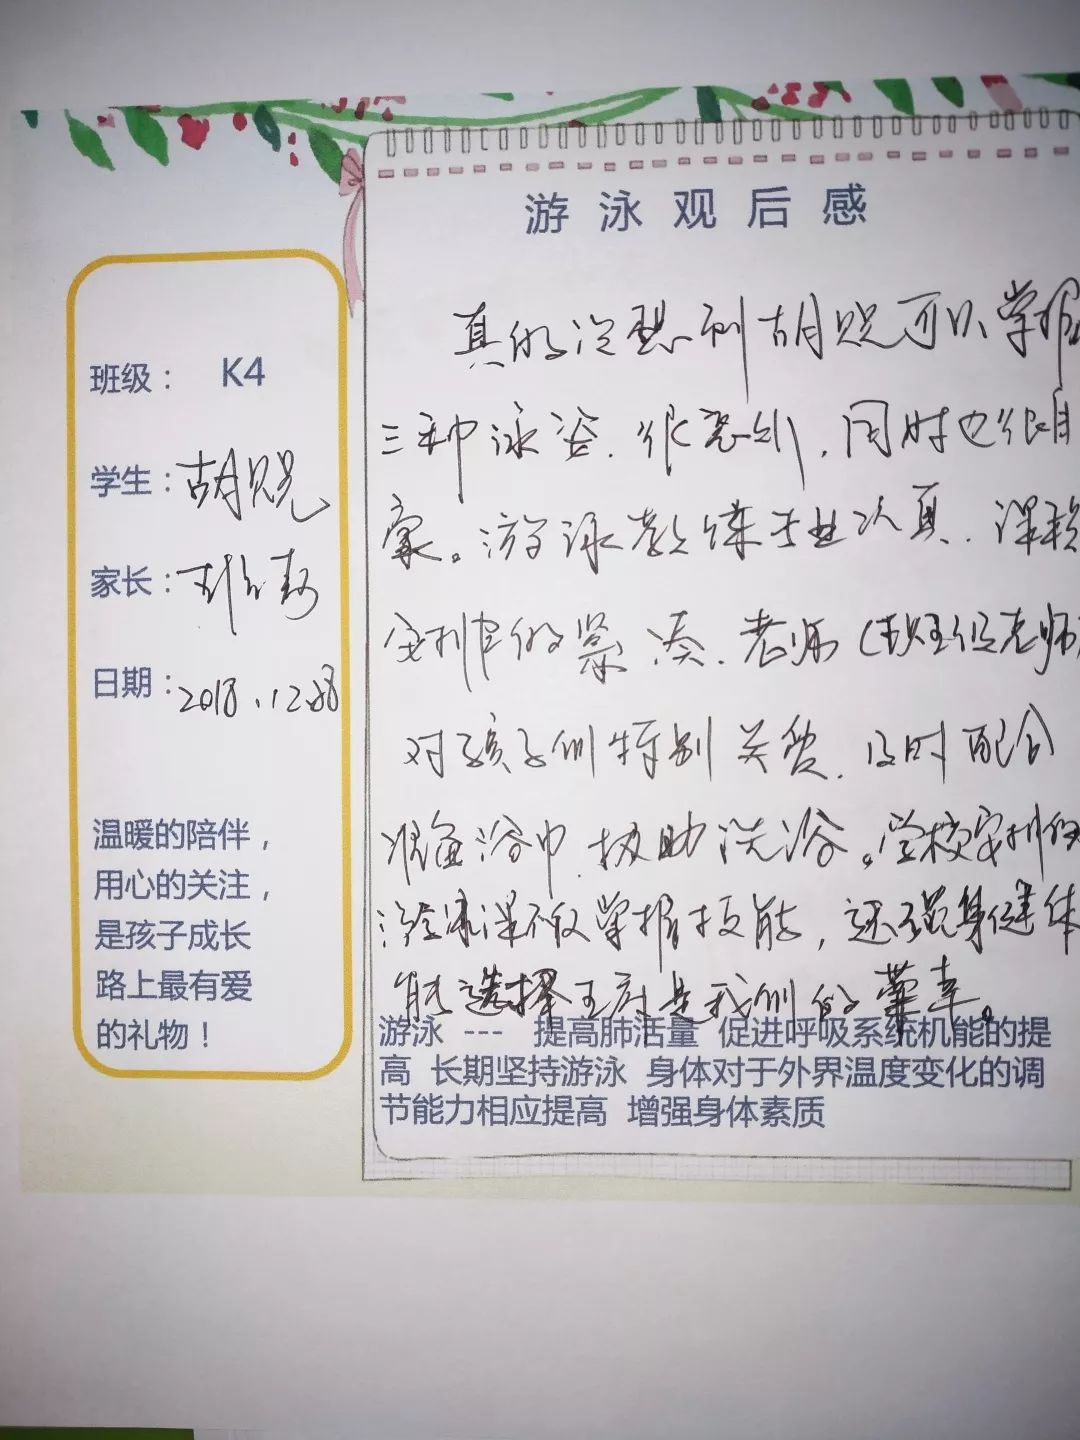 游泳观后感
班级： K4
学生：胡贶
家长：
日期：2018.12.
温暖的陪伴，
用心的关注，
是孩子成长
路上最有爱
的礼物！
真的没想到胡贶可以学握
三种泳姿.很意外,同时也很自
豪。游泳教练专业认真.课程
安排的紧凑.老师(班级老师)
对孩子们特别关爱.及时配合
准备浴巾.协助洗浴。学校安排的
游泳课不仅掌握技能,还强身健体
能选择王府是我们的荣幸。
游泳 --- 提高肺活量 促进呼吸系统机能的提
高 长期坚持游泳 身体对于外界温度变化的调
节能力相应提高 增强身体素质